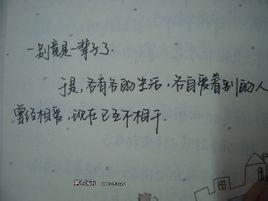 一别竟是一辈子了.
于是,各有各的生活,各自爱着别的人
曾经相爱,现在已互不相干.